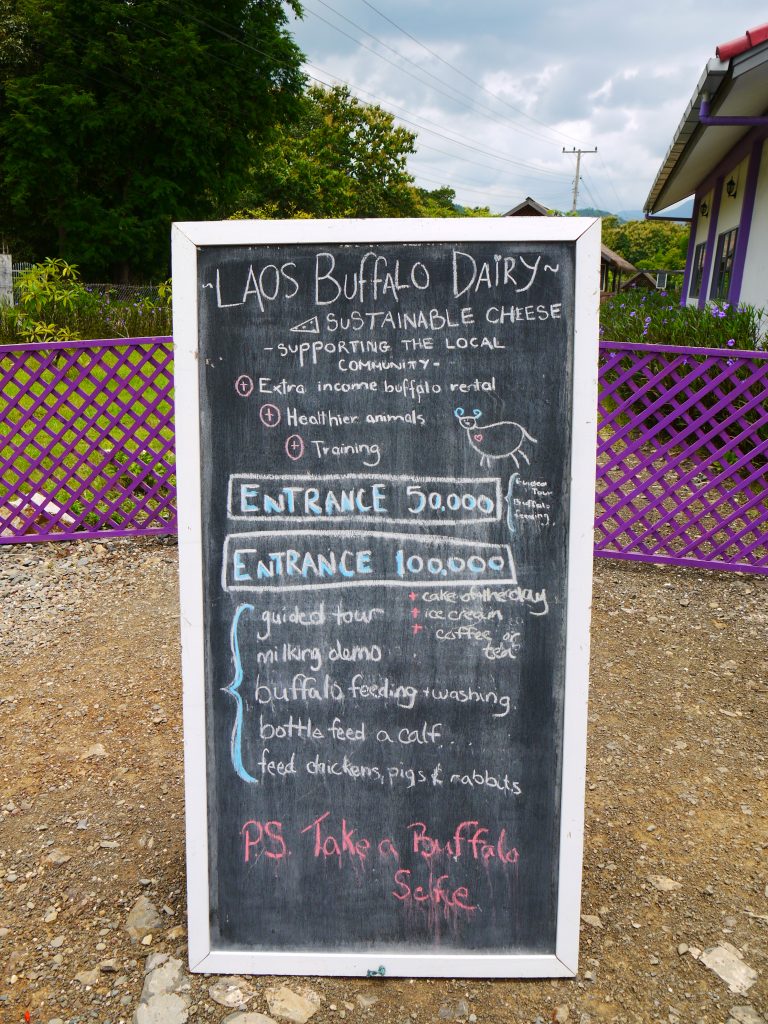 ~LAOS BUFFALO DAIRY~
SUSTAINABLE CHEESE
-SUPPORTING THE LOCAL
COMMUNITY-
+ Extra income buffalo rental
+ Healthier animals
+ Training
ENTRANCE 50,000
Guided
Tour
Buffalo
feeding
ENTRANCE 100,000
+ cake of the day
+ ice cream
+ coffee or
tea
guided tour
milking demo
buffalo feeding + washing.
bottle feed a calf....
feed chickens, pigs & rabbits
P.S. Take a Buffalo
Selfie